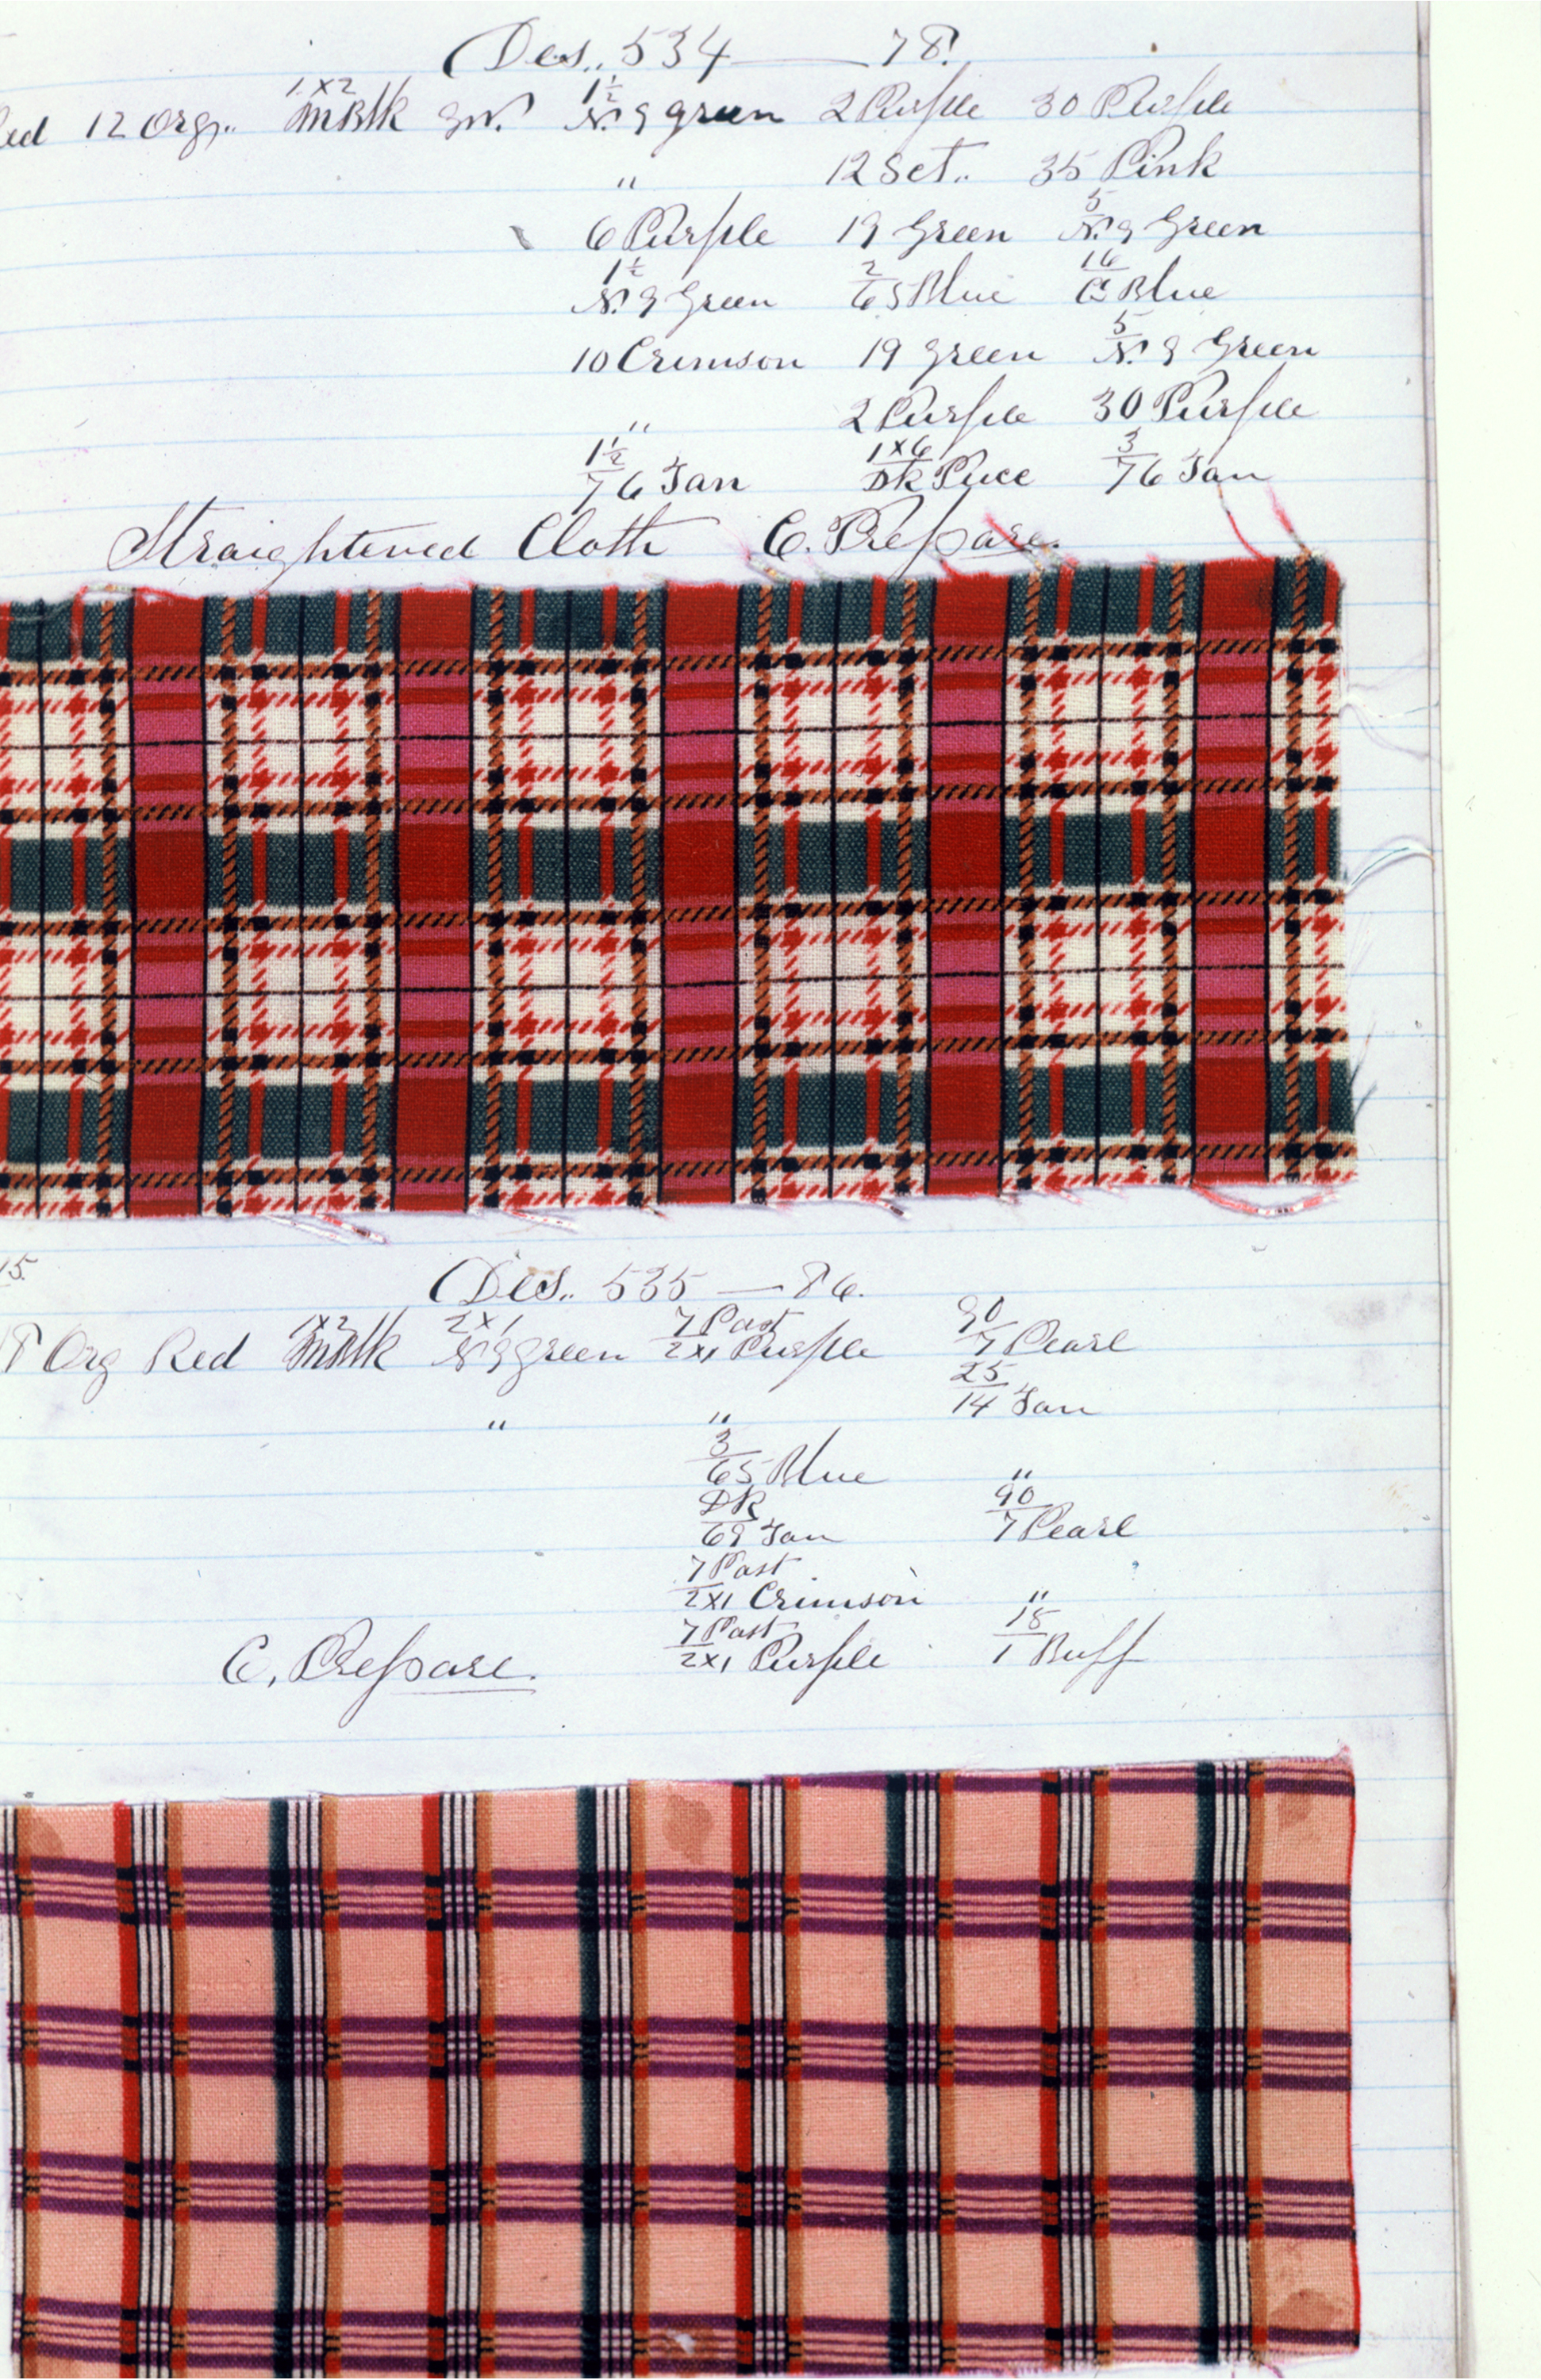 Des.. 534 — 78.
Red 12 Org.. 1x2/MBlk gN. 1½/N. 9 green 2 Purple 30 Purple
" 12 Set.. 35 Pink
6 Purple 19 Green 5/N. 9 Green
1½/N. 9 Green 2/65 Blue 16/C Blue
10 Crimson 19 green 5/N. 9 Green
" 2 Purple 30 Purple
1½/76 Tan 1x6/DK Puce 3/76 Tan
Straightened Cloth C. Prepare.
15.
Des.. 535 — 86.
8 Org Red 1x2/MBlk 2x1/N 9 green 7 Past/2x1 Purple 90/7 Pearl
25/14 Tan
" "
3/65 Blue "
DK/69 Tan 90/7 Pearl
7 Past/2x1 Crimson "
C. Prepare. 7 Past/2x1 Purple 18/1 Buff